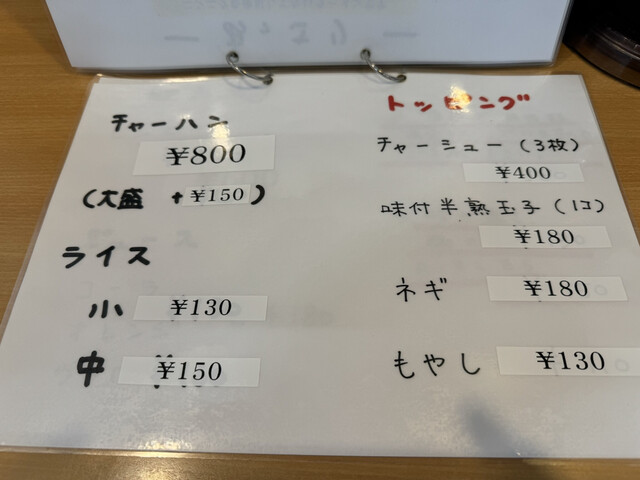 チャーハン
¥800
(大盛 +¥150)
ライス
小 ¥130
中 ¥150
トッピング
チャーシュー(3枚)
¥400
味付半熟玉子(1コ)
¥180
ネギ ¥180
もやし ¥130